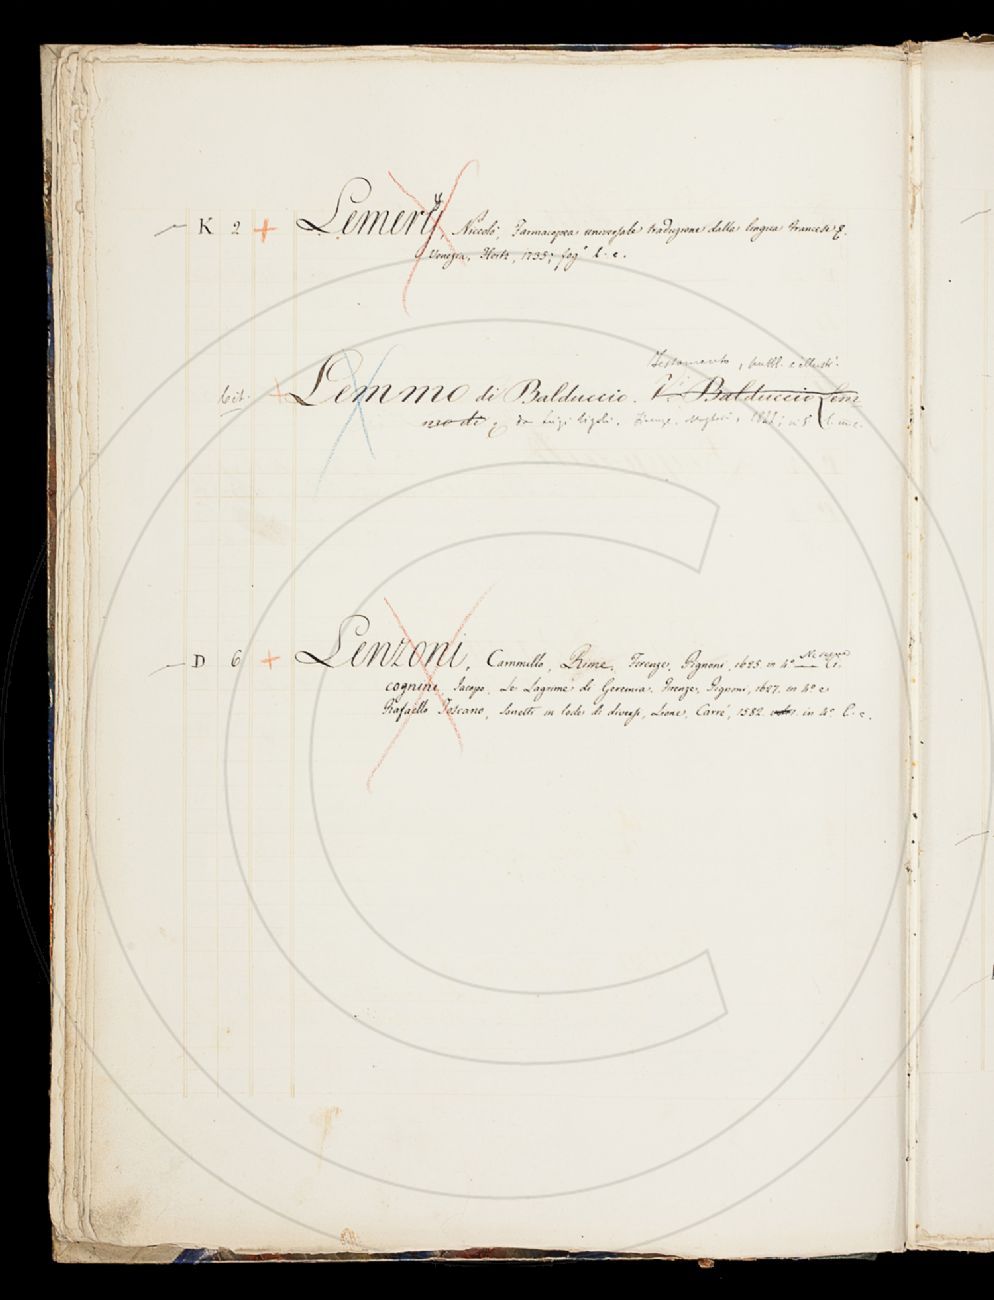 K 2 + Lemery, Niccolò, Farmacopea universale traduzione dalla lingua Francese
Venezia, Hertz, 1735, fog° l. e.
Testamento, pubbl. e illustr.
bit. + Lemmo di Balduccio. V. Balduccio Lem
mo di da Luigi Rigoli. Firenze, Magheri, 18 in 8 l. m. e.
D 6 + Lenzoni, Cammillo, Rime, Firenze, Pignoni, 1625 in 4° Ci-
cognini, Jacopo, Le Lagrime di Geremia. Firenze, Pignoni, 1627. in 4° e
Rafaello Toscano, Sonetti in lode di diversi, Lione, Carré, 1582 in 4° l. e.